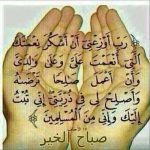 ﴿ رَبِّ أَوْزِعْنِي أَنْ أَشْكُرَ نِعْمَتَكَ
الَّتِي أَنْعَمْتَ عَلَيَّ وَعَلَى وَالِدَيَّ
وَأَنْ أَعْمَلَ صَالِحًا تَرْضَاهُ
وَأَصْلِحْ لِي فِي ذُرِّيَّتِي إِنِّي تُبْتُ
إِلَيْكَ وَإِنِّي مِنَ الْمُسْلِمِينَ ﴾
صباح الخير